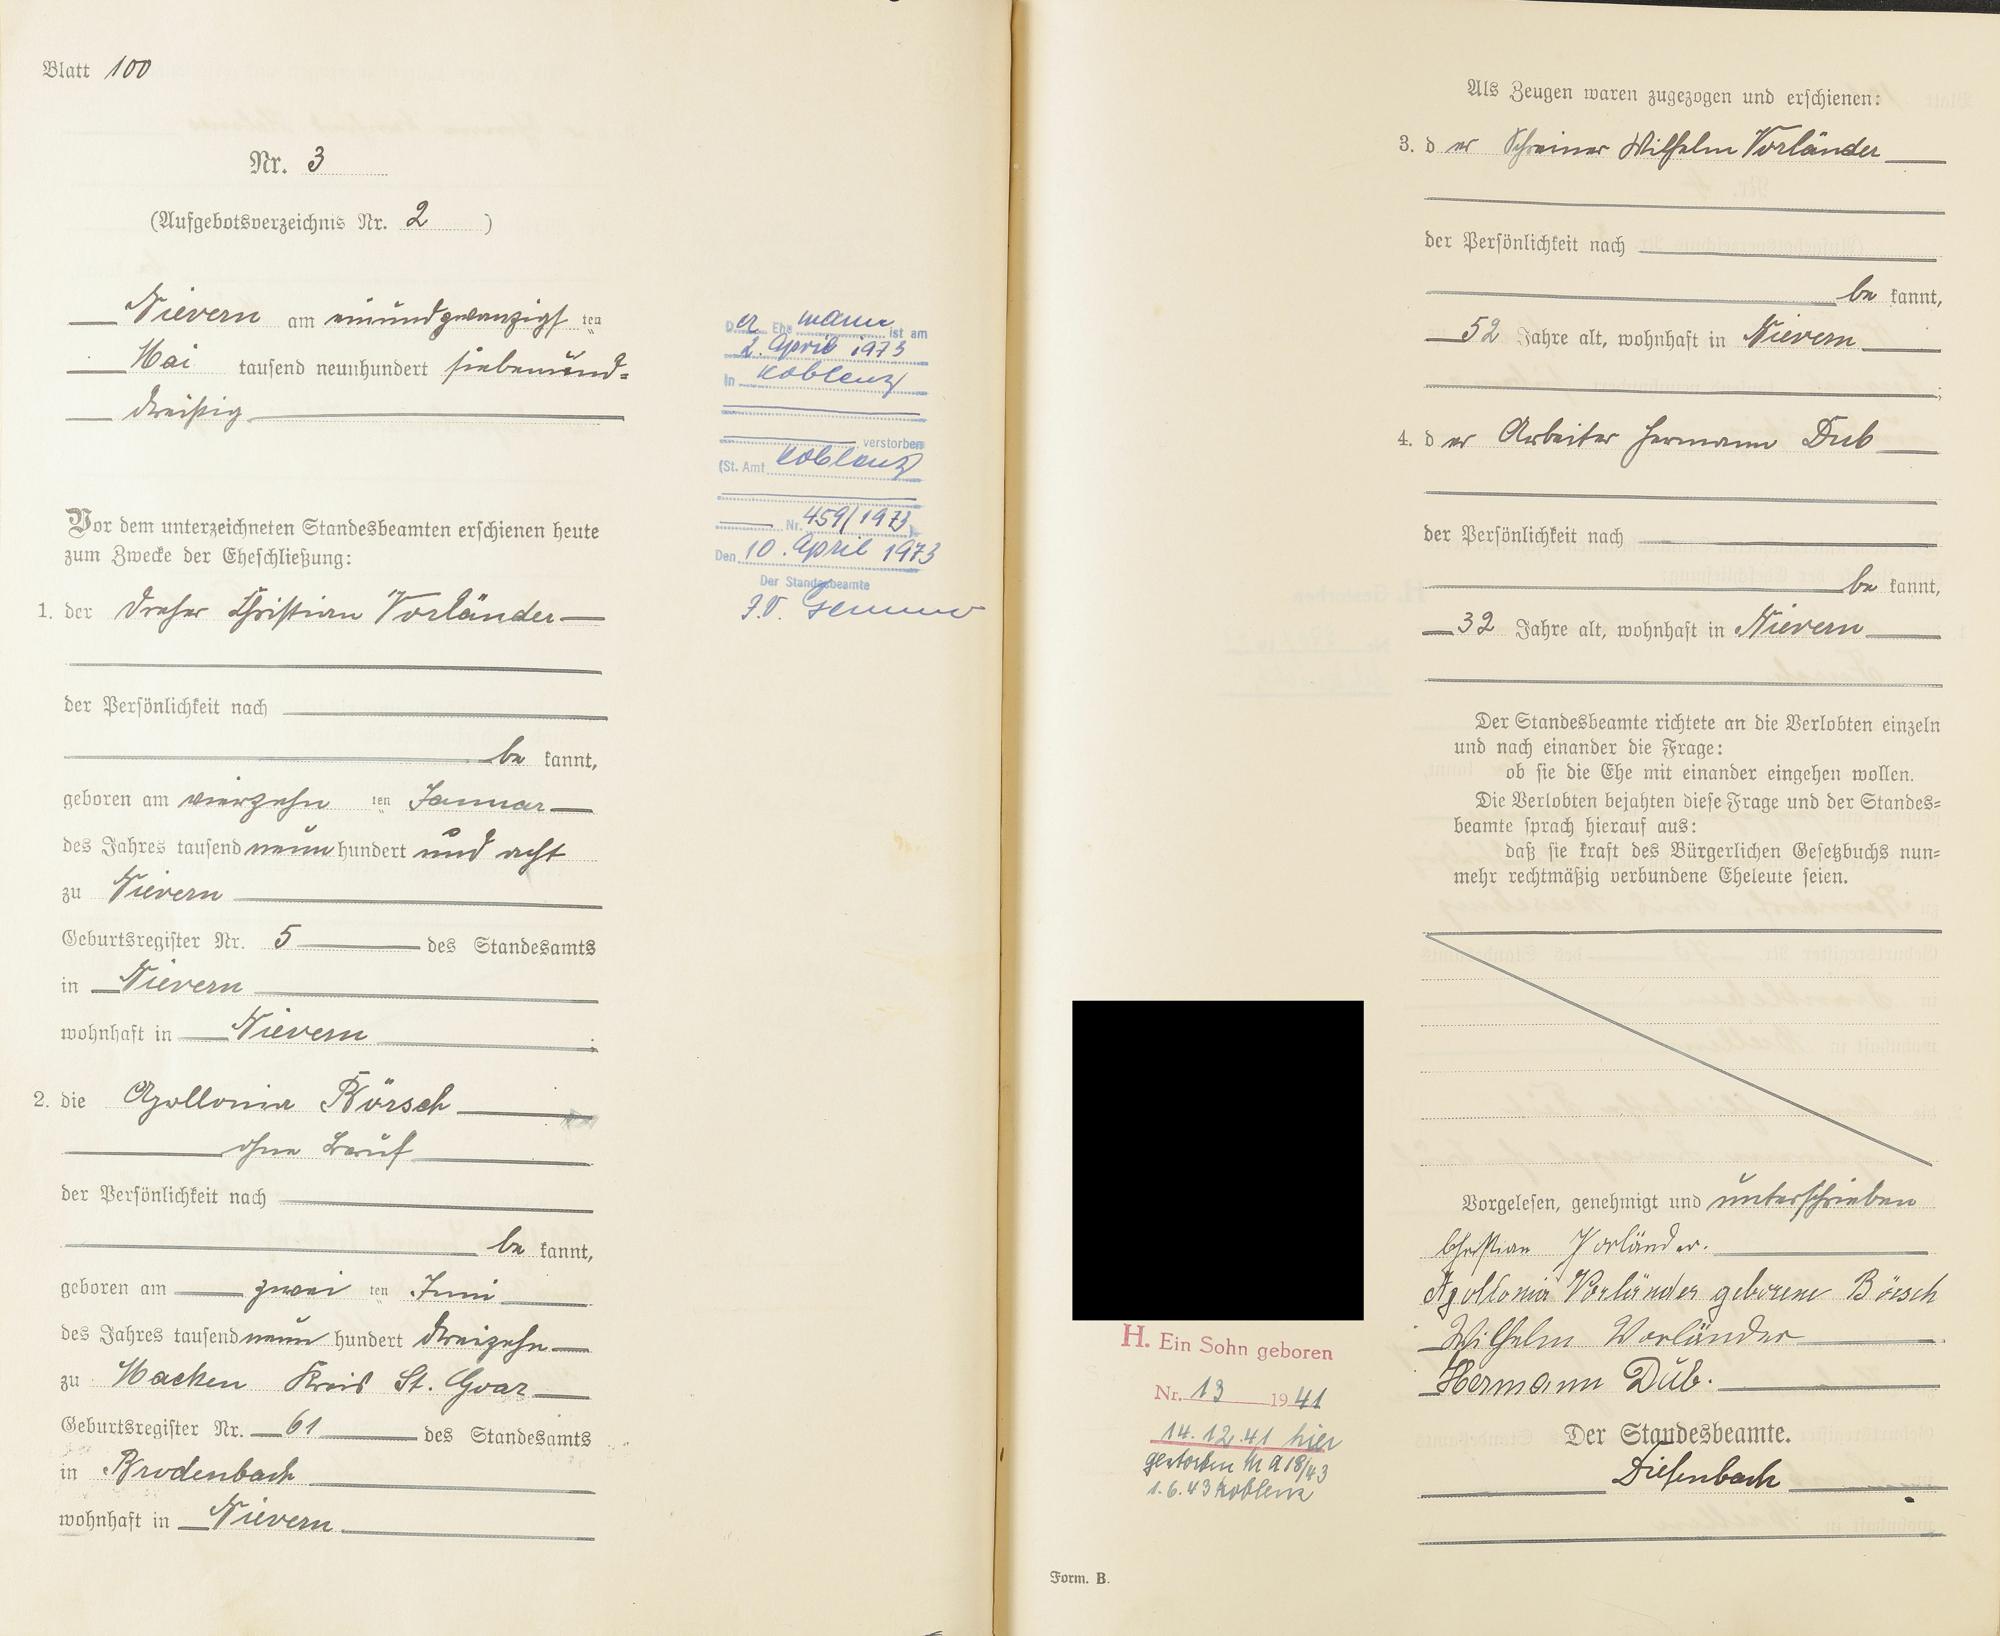 Blatt 100
Nr. 3
(Aufgebotsverzeichnis Nr. 2 )
Nievern am einundzwanzigsten
Mai tausend neunhundert siebenund-
dreißig
Vor dem unterzeichneten Standesbeamten erschienen heute
zum Zwecke der Eheschließung:
1. der Dreher Christian Vorländer
der Persönlichkeit nach
be kannt,
geboren am vierzehn ten Januar
des Jahres tausend neun hundert und acht
zu Nievern
Geburtsregister Nr. 5 des Standesamts
in Nievern
wohnhaft in Nievern ;
2. die Apollonia Börsch
ohne Beruf
der Persönlichkeit nach
be kannt,
geboren am zwei ten Juni
des Jahres tausend neun hundert dreizehn
zu Macken Kreis St. Goar
Geburtsregister Nr. 61 des Standesamts
in Brodenbach
wohnhaft in Nievern
Der Ehemann ist am
2. April 1973
in Koblenz
verstorben
(St. Amt Koblenz
Nr. 459/1973)
Den 10. April 1973
Der Standesbeamte
J.V.
Als Zeugen waren zugezogen und erschienen:
3. der Schreiner Wilhelm Vorländer
der Persönlichkeit nach
be kannt,
52 Jahre alt, wohnhaft in Nievern
;
4. der Arbeiter Hermann Dub
der Persönlichkeit nach
be kannt,
32 Jahre alt, wohnhaft in Nievern
Der Standesbeamte richtete an die Verlobten einzeln
und nach einander die Frage:
ob sie die Ehe mit einander eingehen wollen.
Die Verlobten bejahten diese Frage und der Standes-
beamte sprach hierauf aus:
daß sie kraft des Bürgerlichen Gesetzbuchs nun-
mehr rechtmäßig verbundene Eheleute seien.
Vorgelesen, genehmigt und unterschrieben
Christian Vorländer.
Apollonia Vorländer geborene Börsch
Wilhelm Vorländer
Hermann Dub.
Der Standesbeamte.
Diefenbach
H. Ein Sohn geboren
Nr. 13 1941
14.12.41 hier
gestorben Nr a 18/43
1.6.43 Koblenz
Form. B.